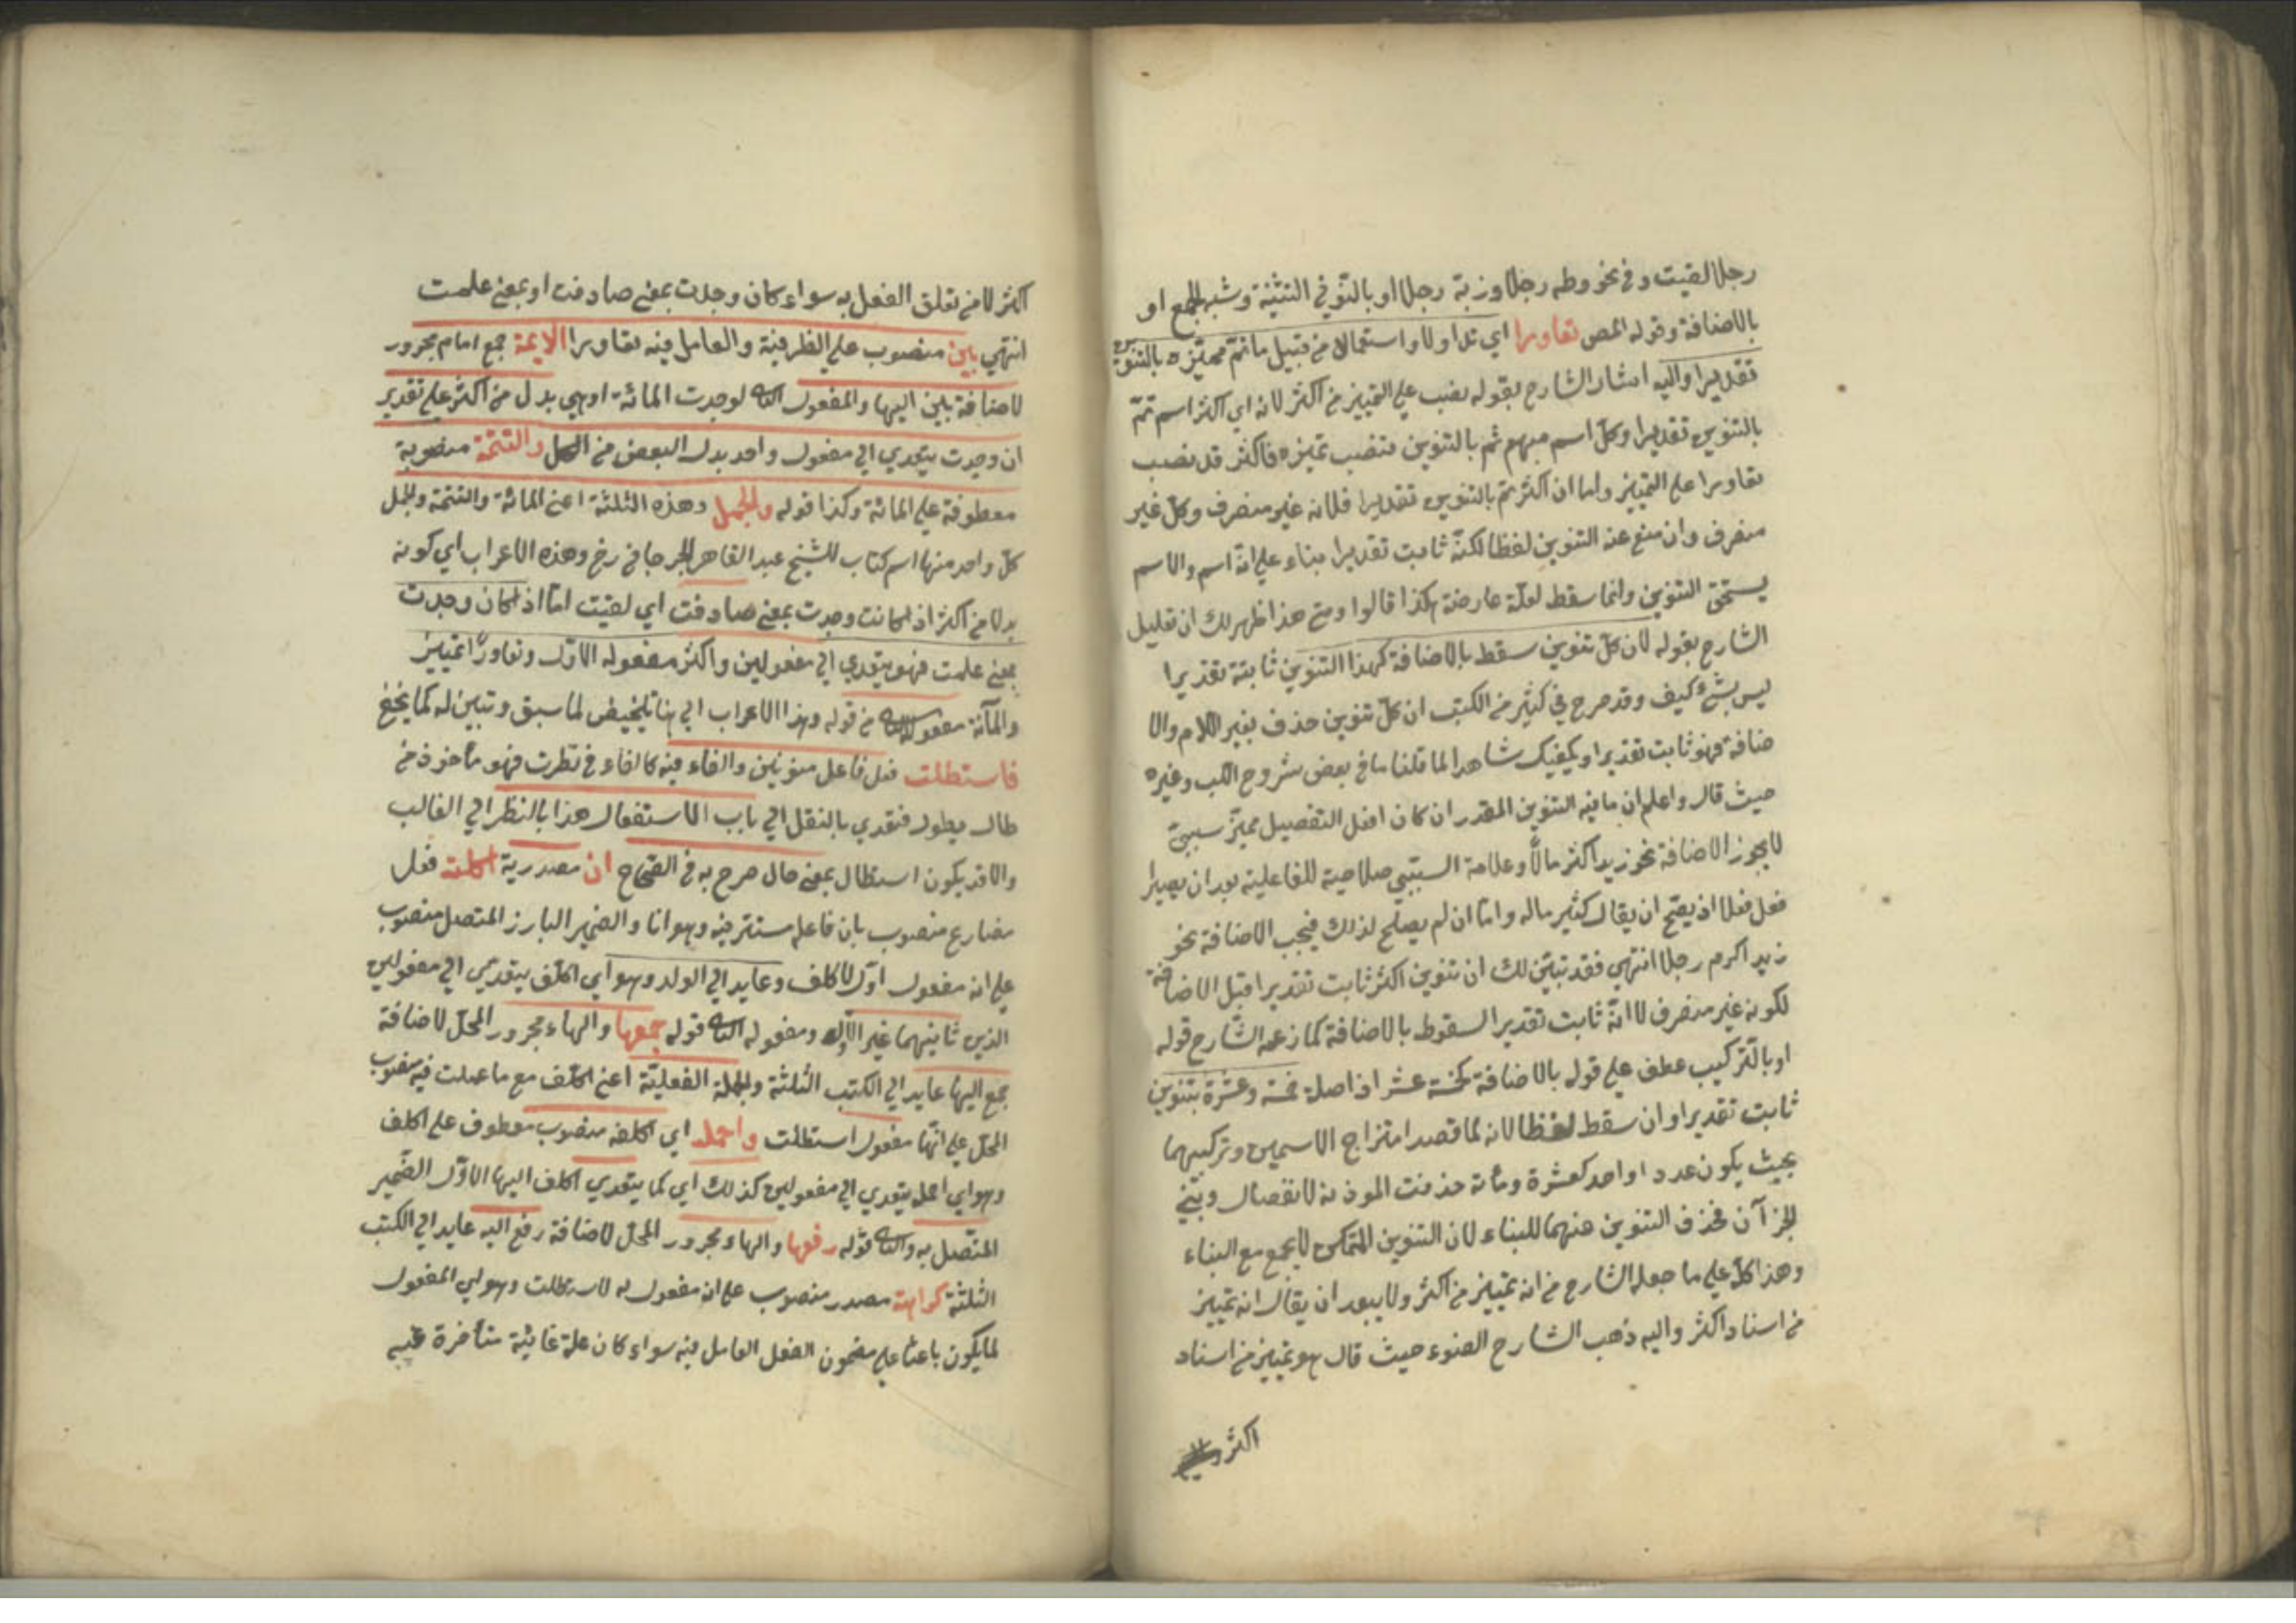 رجلا لقيت وفي نحو وطه رجلا وزنة رجلا او بالنون في التثنية وشبه الجمع او
بالاضافة وقوله المص تعاورا اي تداولا واستعمالا من قبيل ما تم مميزه بالتنوين
تقديرا واليه اشار الشارح بقوله نصب على التمييز من اكثر لانه اي اكثر اسم تم
بالتنوين تقديرا وكل اسم مبهم تم بالتنوين ينصب تميزه فاكثر قد نصب
تعاورا على التمييز واما ان اكثر تم بالتنوين تقديرا فلانه غير منصرف وكل غير
منصرف وان منع عنه التنوين لفظا لكنه ثابت تقديرا بناء على انه اسم والاسم
يستحق التنوين وانما سقط لعلة عارضة هكذا قالوا ومع هذا ظهر لك ان تعليل
الشارح بقوله لان كل تنوين سقط بالاضافة كهذا التنوين ثابتة تقديرا
ليس بشئ كيف وقد صرح في كثير من الكتب ان كل تنوين حذف بغير اللام والا
ضافة فهو ثابت تقديرا ويكفيك شاهدا لما قلنا ما في بعض شروح اللب وغيره
حيث قال واعلم ان ما فيه التنوين المقدر ان كان افعل التفضيل مميز سببي
لا يجوز الاضافة نحو زيد اكثر مالا وعلامة السببي صلاحية للفاعلية بعد ان يصير
فعل فعلا اذ يصح ان يقال كثير ماله واما ان لم يصلح لذلك فيجب الاضافة نحو
زيد اكرم رجلا انتهى فقد تبين لك ان تنوين اكثر ثابت تقديرا قبل الاضافة
لكونه غير منصرف لا انه ثابت تقديرا لسقوط بالاضافة كما زعمه الشارح قوله
او بالتركيب عطف على قوله بالاضافة كخمسة عشر اذ اصله خمسة وعشرة بتنوين
ثابت تقديرا وان سقط لفظا لانه لما قصد امتزاج الاسمين وتركيبهما
بحيث يكون عددا واحد كعشرة ومائة حذفت الموذنة لانفصال وبني
الجزآن فحذف التنوين عنهما للبناء لان التنوين المتمكن لا يجمع مع البناء
وهذا كله على ما جعله الشارح من انه تمييز من اكثر ولا يبعد ان يقال انه تمييز
من اسناد اكثر واليه ذهب الشارح الضوء حيث قال هو تمييز من اسناد
اكثر
اكثر لا من تعلق الفعل به سواء كان وجدت بمعنى صادفت او بمعنى علمت
انتهى بين منصوب على الظرفية والعامل فيه تعاورا الايمة جمع امام مجرور
لاضافة بين اليها والمفعول الثاني لوجدت المائة اوهي بدل من اكثر على تقدير
ان وجدت يتعدي الي مفعول واحد بدل البعض من الكل والتتمة منصوبة
معطوفة على المائة وكذا قوله والجمل وهذه الثلثة اعني المائة والتتمة والجمل
كل واحد منها اسم كتاب للشيخ عبد القاهر الجرجاني رخ وهذه الاعراب اي كونه
بدلا من اكثر اذا كانت وجدت بمعنى صادفت اي لقيت اما اذا كان وجدت
بمعنى علمت فهو يتعدي الي مفعولين واكثر مفعوله الاول وتعاورا تمييز
والمائة مفعوله الثاني من قوله وهذا الاعراب الي هنا تلخيص لما سبق وتبين له كما يخفى
فاستطلت فعل فاعل منونين والفاء فيه كالفاء في نظرت فهو مأخوذ من
طال يطول فتعدي بالنقل الي باب الاستفعال هذا بالنظر الي الغالب
والا قد يكون استطال بمعنى طال صرح به في الصحاح ان مصدرية اكلفه فعل
مضارع منصوب بان فاعله مستتر فيه وهو انا والضمير البارز المتصل منصوب
على انه مفعول اول لاكلف وعايد الي الولد وهو اي اكلف يتعدي الي مفعولين
الذين ثانيهما غير الاول ومفعوله الثاني قوله جمعها والهاء مجرور المحل لاضافة
جمع اليها عايد الي الكتب الثلثة والجملة الفعلية اعني اكلف مع ما عملت فيه منصوب
المحل على انها مفعول استطلت واحمله اي اكلفه منصوب معطوف على اكلف
وهو اي احمل يتعدي الي مفعولين كذلك اي كما يتعدي اكلف اليها الاول الضمير
المتصل به والثاني قوله رفعها والهاء مجرور المحل لاضافة رفع اليه عايد الي الكتب
الثلثة كراهة مصدر منصوب على انه مفعول له لاستطلت وهو اي المفعول
لما يكون باعثا على مضمون الفعل العامل فيه سواء كان علة غائية متأخرة عنه